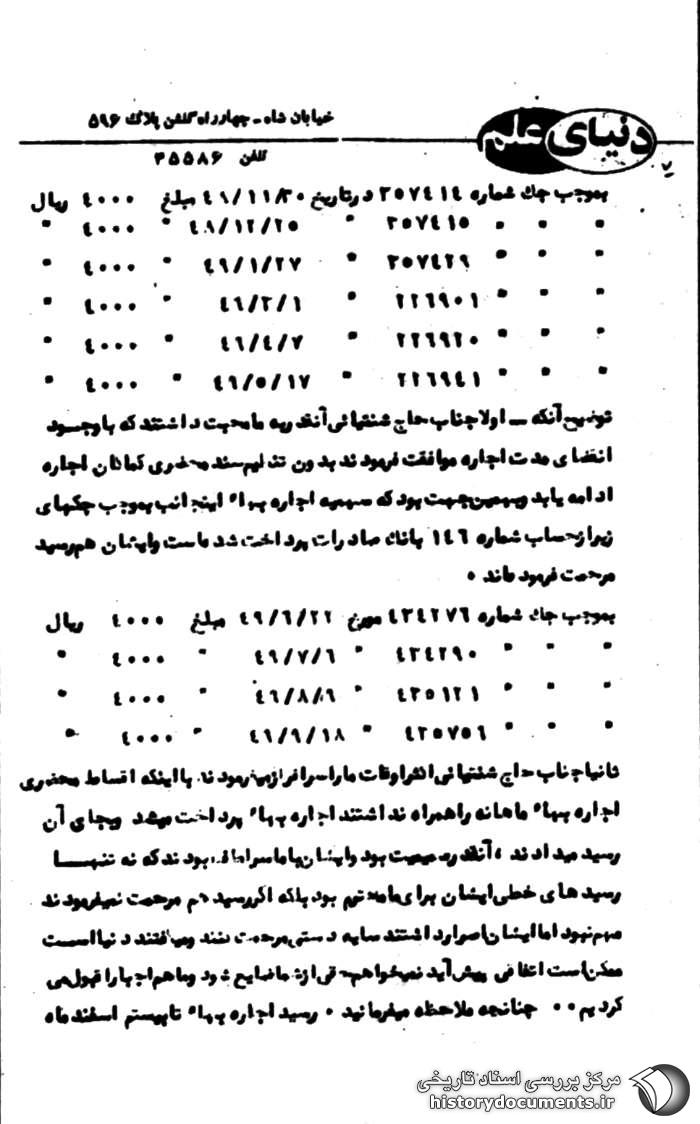 خیابان شاه – چهارراه گلشن پلاک ۵۹۶
دنیای علم
تلفن ۴۵۵۸۶
۷
بموجب چك شماره ۳۵۷٤۱٤ درتاریخ ٤٨/۱۱/۳۰ مبلغ ٤۰۰۰ ریال
" " " ۳۵۷٤۱۵ " ٤٨/۱۲/۲۵ " ٤۰۰۰ "
" " " ۳۵۷٤۲۹ " ٤۹/۱/۲۷ " ٤۰۰۰ "
" " " ۲۲٦۹۰۱ " ٤۹/۳/۱ " ٤۰۰۰ "
" " " ۲۲٦۹۲۰ " ٤۹/٤/۷ " ٤۰۰۰ "
" " " ۲۲٦۹٤۱ " ٤۹/۵/۱۷ " ٤۰۰۰ "
توضیح آنکه – اولا جناب حاج شنتیائی آنقدر به ما محبت داشتند که با وجود
انقضای مدت اجاره موافقت فرمودند بدون تنظیم سند محضری کماکان اجاره
ادامه یابد وبهمین جهت بود که سهمیه اجاره بهاء اینجانب بموجب چکهای
زیر ازحساب شماره ۱٤٦ بانك صادرات پرداخت شده است وایشان هم رسید
مرحمت فرموده اند ۰
بموجب چك شماره ٤۳٤۲۷٦ مورخ ٤۹/٦/۲۲ مبلغ ٤۰۰۰ ریال
" " " ٤۳٤۲۹۰ " ٤۹/۷/٦ " ٤۰۰۰ "
" " " ٤۳۵۱۲۱ " ٤۹/۸/۹ " ٤۰۰۰ "
" " " ٤۳۵۷۵٦ " ٤۹/۹/۱۸ " ٤۰۰۰ "
ثانیا جناب حاج شنتیائی اکثر اوقات ما را سرافراز میفرمودند با اینکه اقساط محضری
اجاره بهاء ماهانه را همراه نداشتند اجاره بهاء پرداخت میشد وبجای آن
رسید میدادند ، آنقدر صمیمیت بود وایشان با ما بودند که نه تنها
رسید های خطی ایشان برای ما بود بلکه اگر رسید هم مرحمت نمیفرمودند
مهم نبود اما ایشان اصرار داشتند دستی مرحمت کنند ومیگفتند دنیا است
ممکن است اتفاقی پیش آید نمیخواهم حقی از شما ضایع شود وما هم اجبارا قبول می
کردیم ۰۰ چنانچه ملاحظه میفرمائید ۰ رسید اجاره بهاء تا بیستم اسفند ماه
مرکز بررسی اسناد تاریخی
historydocuments.ir